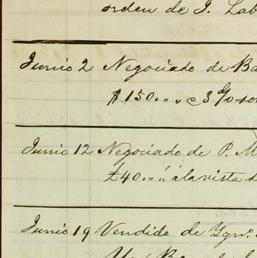 orden de J. Lab
Junio 2 Negociado de Ba
$150.,, c 3% so
Junio 12 Negociado de P. M
£40.,,,, á la vista s
Junio 19 Vendido de Ygn.